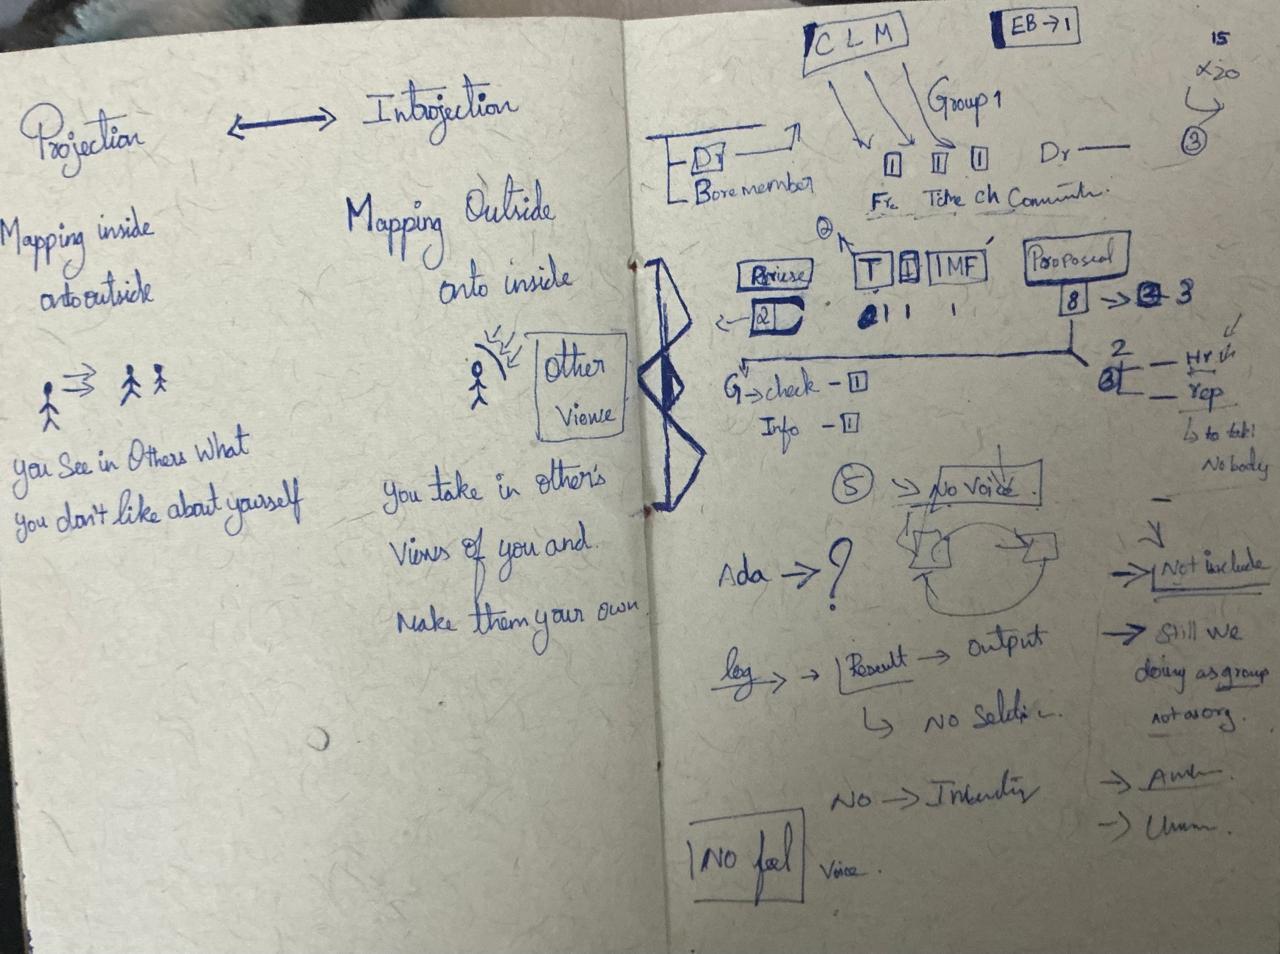 Projection
Introjection
Mapping inside
onto outside
Mapping Outside
onto inside
Other
Views
you See in Others What
you don't like about yourself
you take in other's
Views of you and
Make them your own
CLM
EB → 1
15
x20
3
Group 1
Dr
Dr
Boremember
1 1 1
Time Ch
2
T 1 IMF
Proposal
2
1 1 1
8 → 3
G → check - 1
Info - 1
2
3
Hr
rep
↳ to
No body
5 → No Voice
Ada → ?
→ Not include
log → → Result → output
↳ No
→ Still we
doing as group
not as org.
No →
No feel
Voice.